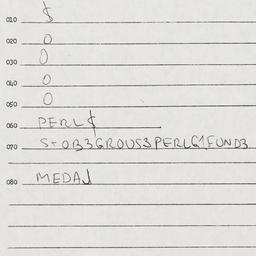 010 $
020 0
030 0
040 0
050 0
060 PERL$
070
080 MEDAL